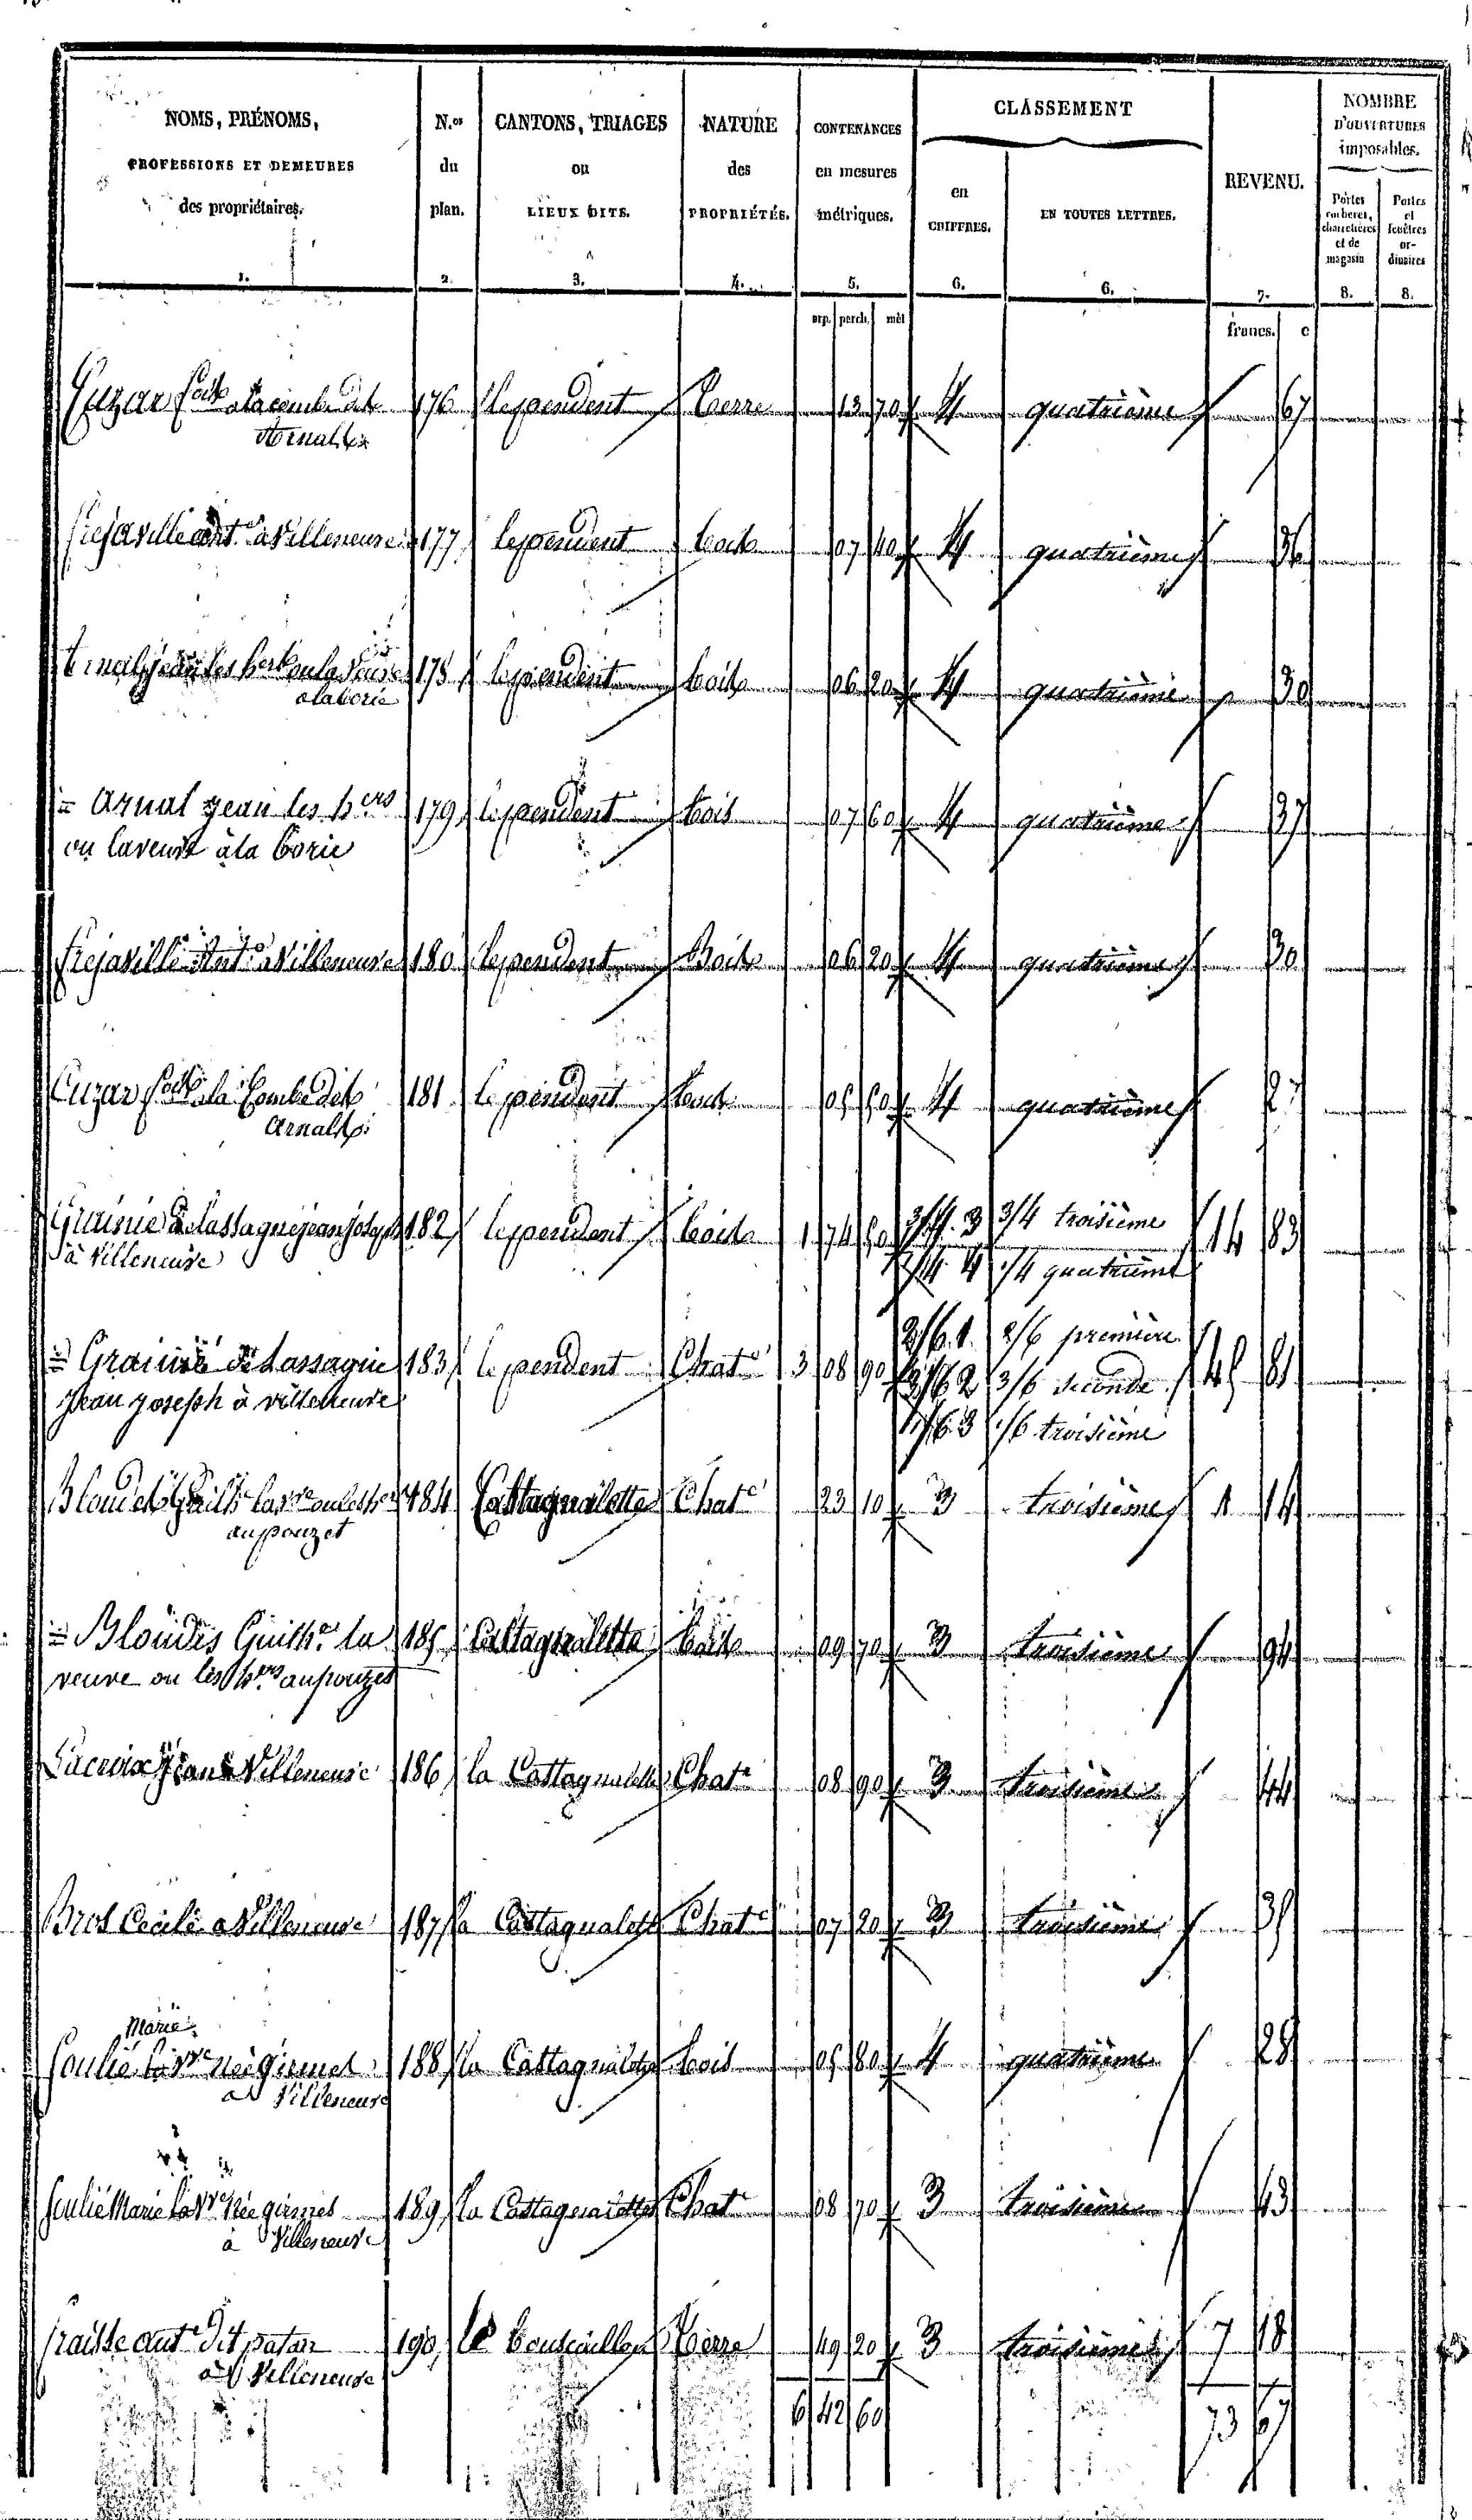 NOMS, PRÉNOMS, PROFESSIONS ET DEMEURES des propriétaires. N.os du plan. CANTONS, TRIAGES ou LIEUX DITS. NATURE des PROPRIÉTÉS. CONTENANCES en mesures métriques. CLASSEMENT en CHIFFRES. EN TOUTES LETTRES. REVENU. NOMBRE D'OUVERTURES imposables. Portes cocheres, charretières et de magasin Portes et fenêtres ordinaires
1. 2. 3. 4. 5. 6. 6. 7. 8. 8.
arp. perch. mèt francs. c
Cuzar à la combe dit 176 le pendent terre 13 70 4 quatrième 67
Arnal
frejaville ant.e à Villeneuve 177 le pendent bois 07 40 4 quatrième 36
Arnal jean les her ou la veuve 178 le pendent bois 06 20 4 quatrième 30
a la borie
= Arnal jean les h.ers 179 le pendent bois 07 60 4 quatrième 37
ou la veuve à la borie
frejaville Ant.e à Villeneuve 180 le pendent Bois 06 20 4 quatrième 30
Cuzar à la Combe dit 181 le pendent bois 05 50 4 quatrième 27
Arnal
Grainié de lassagne jean joseph 182 le pendent bois 1 74 3/4. 3 3/4 troisième 14 83
à Villeneuve 1/4. 4 1/4 quatrième
2/6. 1. 2/6 première
= Grainié de Lassagne 183 le pendent Chat.e 3 08 90 3/6 2 3/6 seconde 45 81
Jean joseph à villeneuve 1/6. 3 1/6 troisième
Blondet la v.e ou les h.ers 184 Castagnalette Chat.e 23 10 3 troisième 1 14
au pouzet
= Bloudés Guilh.e la 185 Castagnalette bois 09 70 3 troisième 94
veuve ou les h.ers au pouzet
Lacroix Jean à Villeneuve 186 la Castagnalette Chat.e 08 90 3 troisième 44
Bros Cecile à Villeneuve 187 la Castagnalette Chat.e 07 20 3 troisième 35
Marie
Soulié la v.ve née girmes 188 la Castagnalette bois 05 80 4 quatrième 28
à Villeneuve
Soulié Marie la v.ve née girmes 189 la Castagnalette Chat.e 08 70 3 troisième 43
à Villeneuve
fraisse ant.e dit patan 190 terre 49 20 3 troisième 7 18
à Villeneuve
6 42 60 73 67